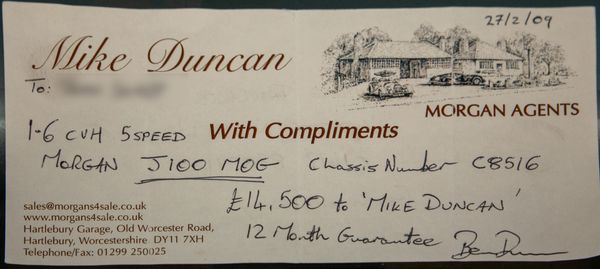 27/2/09
Mike Duncan
To:
MORGAN AGENTS
1-6 CVH 5 SPEED
With Compliments
MORGAN J100 MOG Chassis Number C8516
£14,500 to 'MIKE DUNCAN'
12 Month Guarantee
sales@morgans4sale.co.uk
www.morgans4sale.co.uk
Hartlebury Garage, Old Worcester Road,
Hartlebury, Worcestershire DY11 7XH
Telephone/Fax: 01299 250025